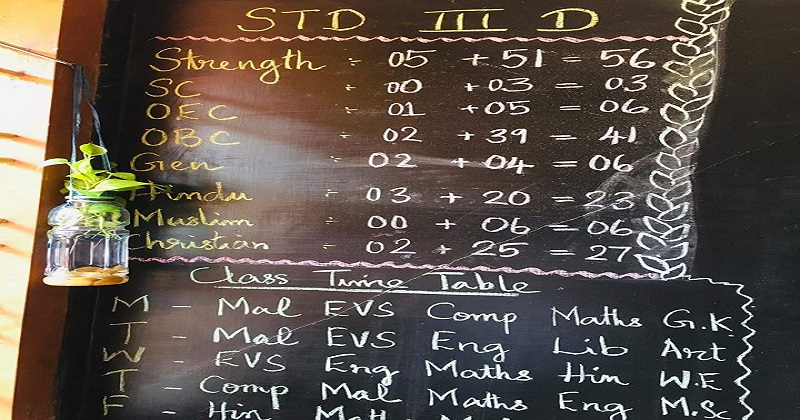 STD III D
Strength : 05 + 51 = 56
SC : 00 + 03 = 03
OEC : 01 + 05 = 06
OBC : 02 + 39 = 41
Gen : 02 + 04 = 06
Hindu : 03 + 20 = 23
Muslim : 00 + 06 = 06
Christian : 02 + 25 = 27
Class Time Table
M - Mal EVS Comp Maths G.K
T - Mal EVS Eng Lib Art
W - EVS Eng Maths Him W.E
T - Comp Mal Maths Eng M.Sc
F - Hin